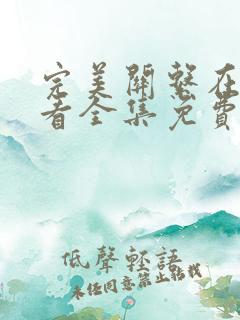 完美關系在
看全集免費
低聲輕語
未經同意禁止轉載